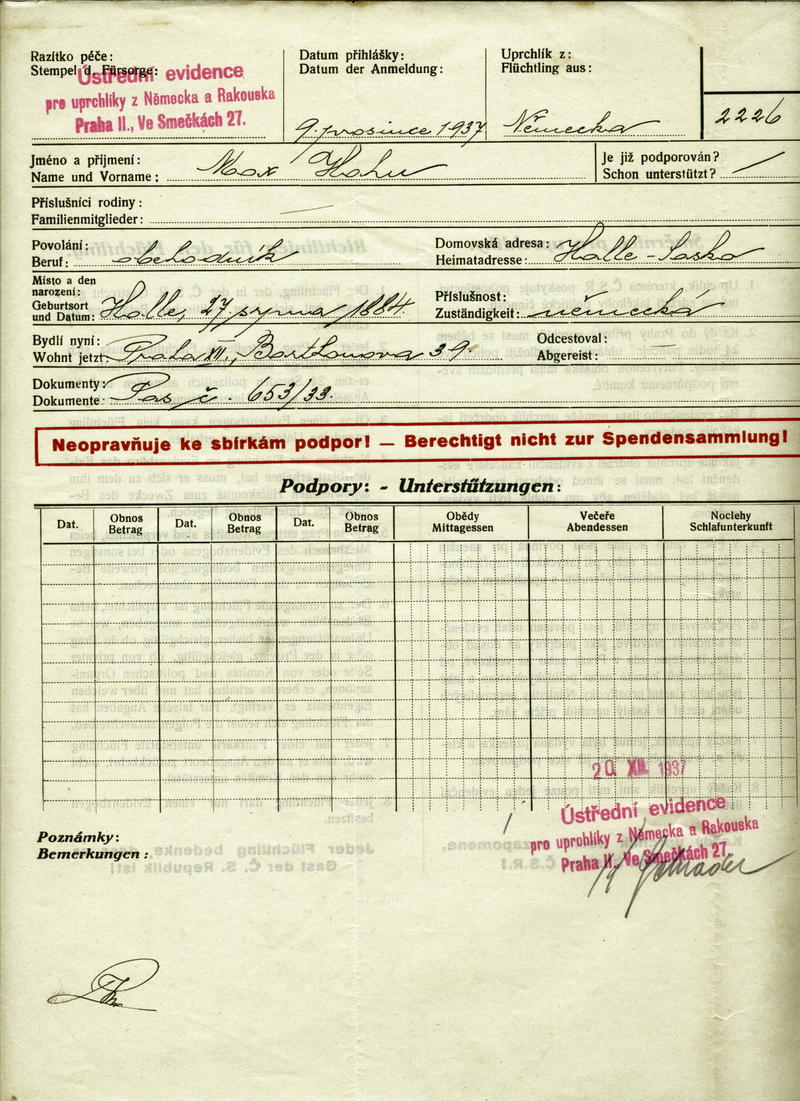 Razítko péče:
Stempel d. Fürsorge:
Ústřední evidence
pro uprchlíky z Německa a Rakouska
Praha II., Ve Smečkách 27.
Datum přihlášky:
Datum der Anmeldung:
9. prosince 1937
Uprchlík z:
Flüchtling aus:
Německa
2226
Jméno a příjmení:
Name und Vorname: Max Hahn
Je již podporován?
Schon unterstützt?
Příslušníci rodiny:
Familienmitglieder:
Povolání:
Beruf: obchodník
Domovská adresa:
Heimatadresse: Halle - Sasko
Místo a den
narození:
Geburtsort
und Datum: Halle, 27. srpna 1884.
Příslušnost:
Zuständigkeit: německá
Bydlí nyní:
Wohnt jetzt: Praha XII., Barthouova 39.
Odcestoval:
Abgereist:
Dokumenty:
Dokumente: Pas č. 653/33.
Neopravňuje ke sbírkám podpor! — Berechtigt nicht zur Spendensammlung!
Podpory: - Unterstützungen:
Dat. Obnos Betrag Dat. Obnos Betrag Dat. Obnos Betrag Obědy Mittagessen Večeře Abendessen Noclehy Schlafunterkunft
20. XII. 1937
Ústřední evidence
pro uprchlíky z Německa a Rakouska
Praha II., Ve Smečkách 27.
Schrader
Poznámky:
Bemerkungen: